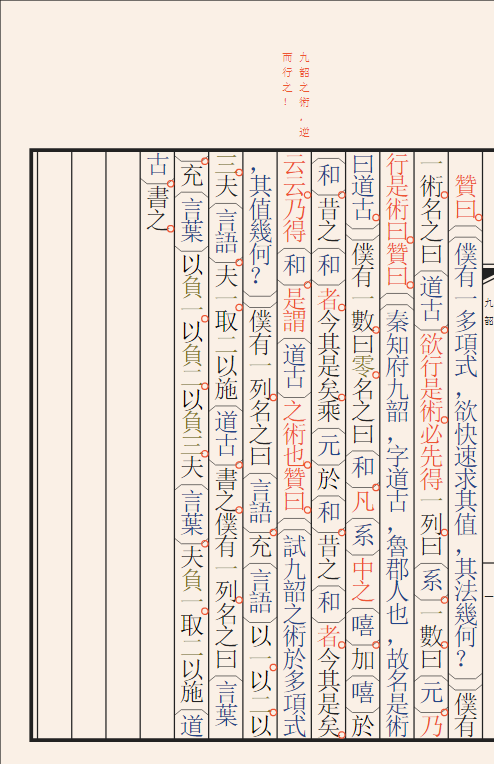 九韶之術,逆
而行之!
九韶
一
贊曰。僕有一多項式,欲快速求其值,其法幾何?僕有
一術。名之曰道古。欲行是術。必先得一列。曰系。一數。曰元。乃
行是術曰。贊曰。秦知府九韶,字道古,魯郡人也,故名是術
曰道古。僕有一數。曰零。名之曰和。凡系中之嘻。加嘻於
和。昔之和者。今其是矣。乘元於和。昔之和者。今其是矣。
云云。乃得和。是謂道古之術也。贊曰。試九韶之術於多項式
,其值幾何?僕有一列。名之曰言語。充言語以一。以二。以
三。夫言語。夫一。取二。以施道古。書之。僕有一列。名之曰言葉
。充言葉以負一。以負二。以負三。夫言葉。夫負一。取二。以施道
古。書之。